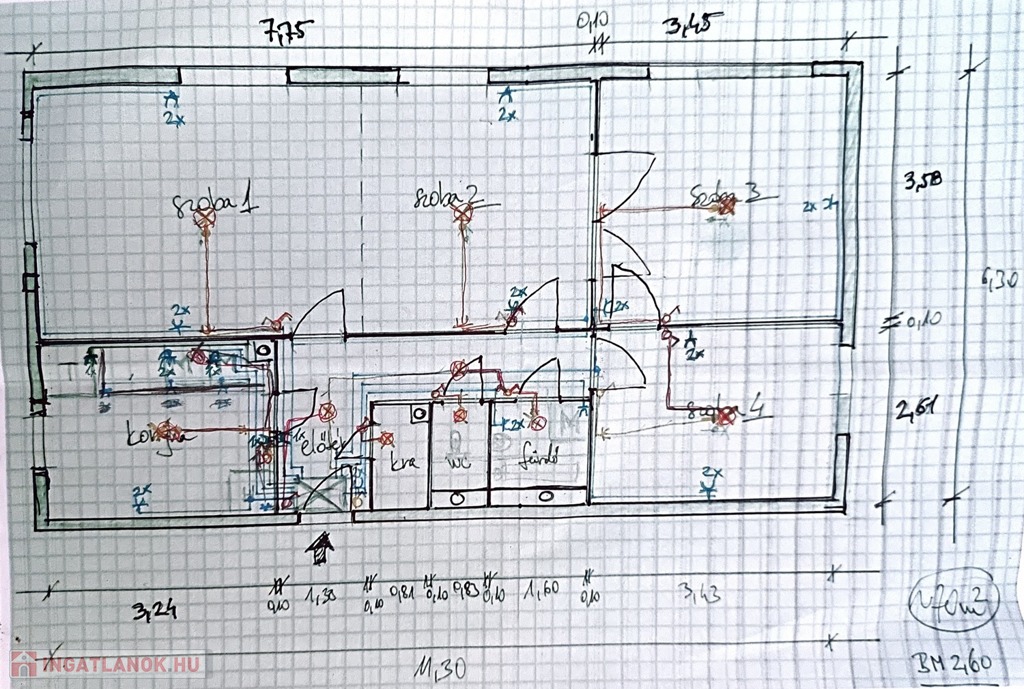 7,75
0,10
3,45
2x
2x
3,58
szoba 1
szoba 2
szoba 3
2x
6,30
2x
2x
2x
0,10
2x
2x
szoba 4
2,61
konyha
1x
előtér
kra
wc
fürdő
2x
2x
3,24
0,10
1,38
0,10
0,81
0,10
0,83
0,10
1,60
0,10
3,43
11,30
BM 2,60
INGATLANOK.HU